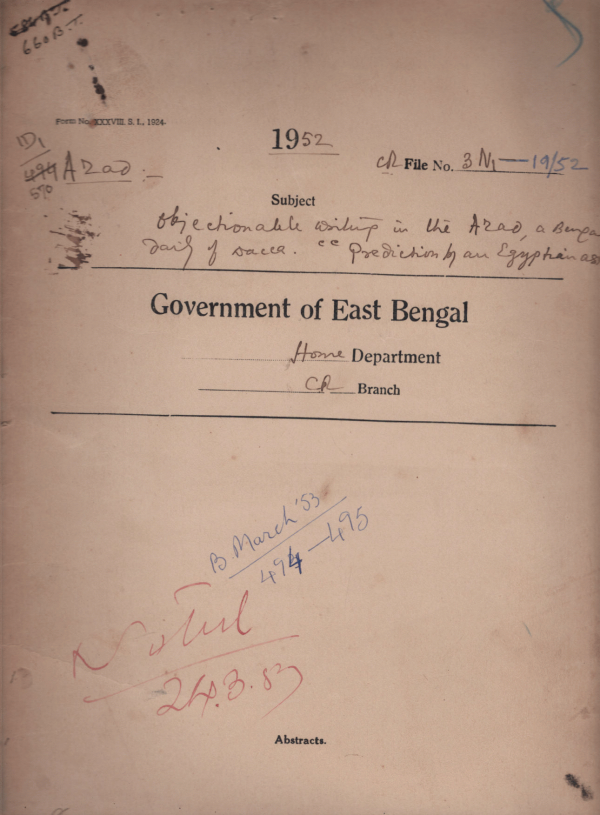 660 B.J.
Form No. XXXVIII. S. I., 1924.
1952
ID1
494
570
Azad :—
CR File No. 3 N1—19/52
Subject
Objectionable writing in the Azad, a Benga
daily of Dacca. "Prediction by an Egyptian as
Government of East Bengal
Home Department
CR Branch
B. March '53
494—495
24.3.53
Abstracts.